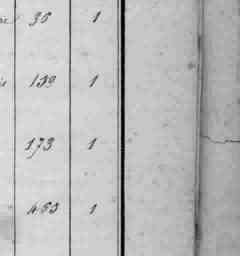 36 1
139 1
173 1
463 1